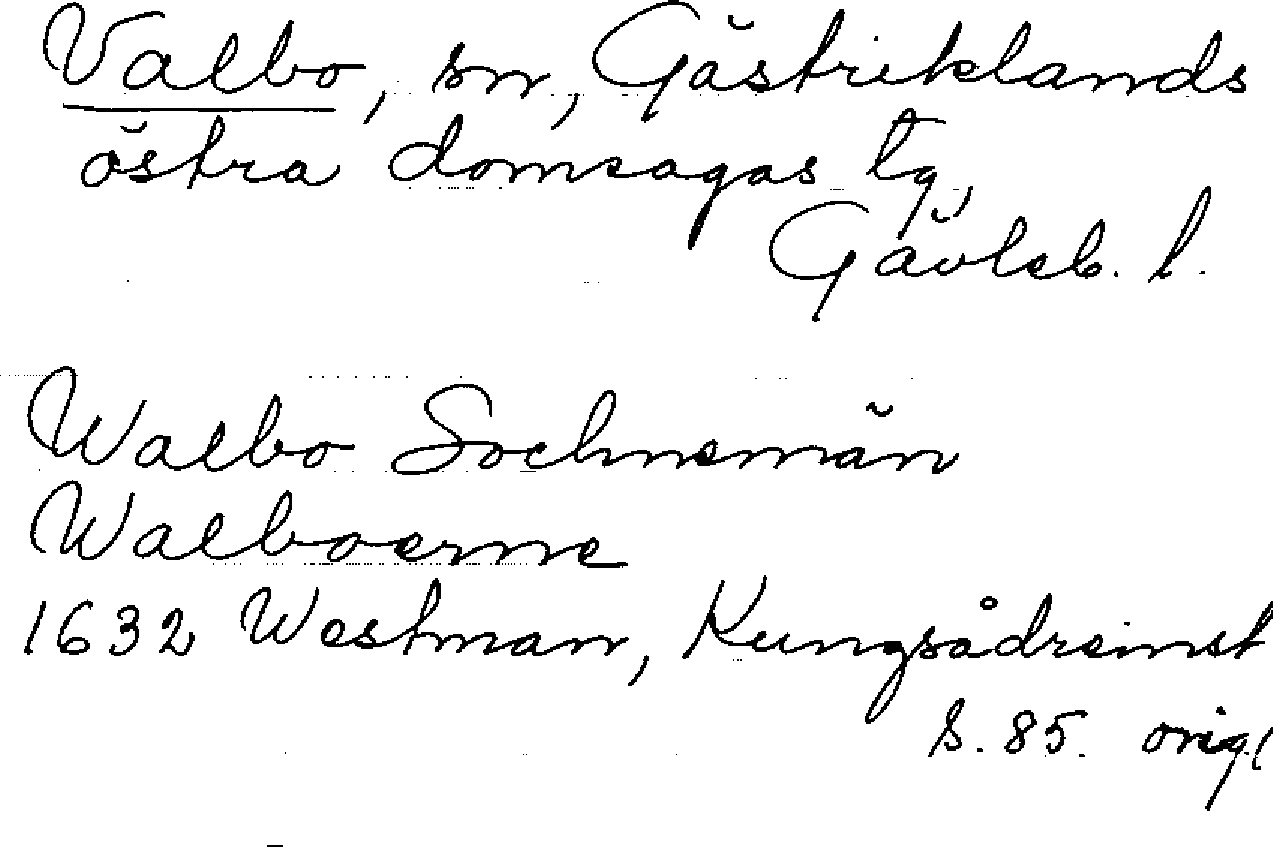 Valbo, sn, Gästriklands
östra domsagas tg,
Gävleb. l.
Walbo Sochnemän
Walboerne
1632 Westman, Kungsådreinst
s. 85. orig